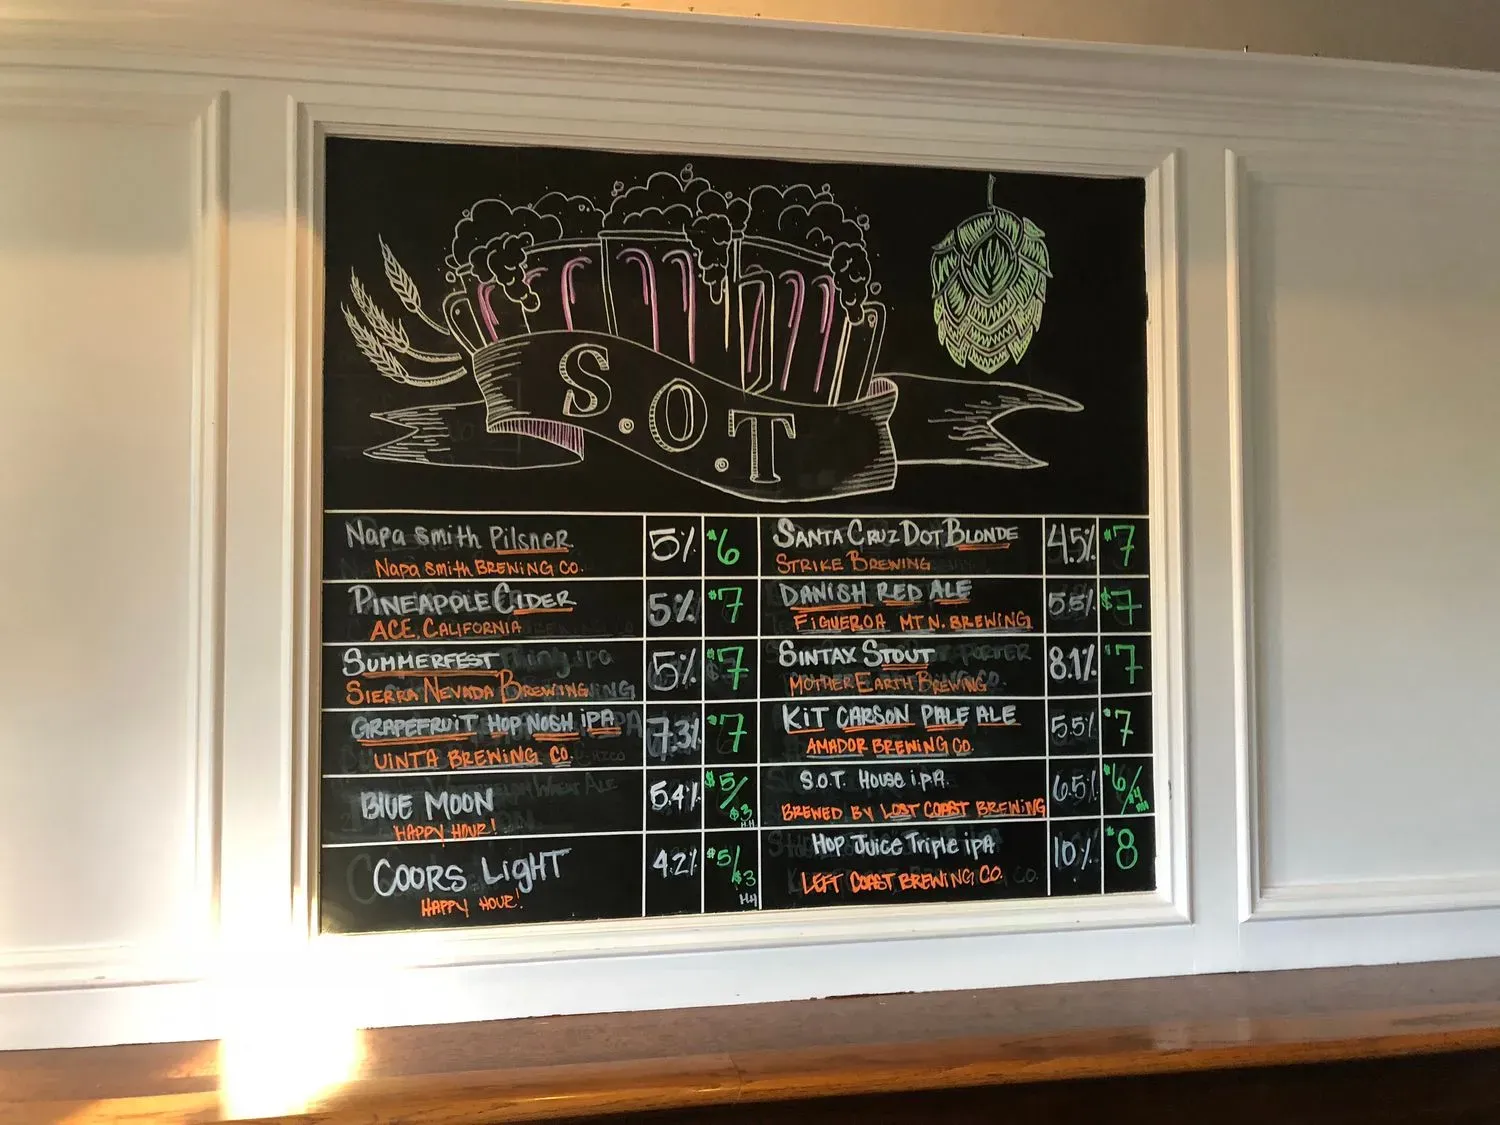 S.O.T
Napa Smith Pilsner 5% $6
Napa Smith Brewing Co.
Pineapple Cider 5% $7
ACE, California
Summerfest 5% $7
Sierra Nevada Brewing
Grapefruit Hop Nosh IPA 7.3% $7
Uinta Brewing Co.
Blue Moon 5.4% $5/$3 H.H
Happy Hour!
Coors Light 4.2% $5/$3 H.H
Happy Hour!
Santa Cruz Dot Blonde 4.5% $7
Strike Brewing
Danish Red Ale 5.5% $7
Figueroa Mtn. Brewing
Sintax Stout 8.1% $7
Mother Earth Brewing
Kit Carson Pale Ale 5.5% $7
Amador Brewing Co.
S.O.T. House i.P.A. 6.5% $6/$4
Brewed by Lost Coast Brewing
Hop Juice Triple iPA 10% $8
Left Coast Brewing Co.